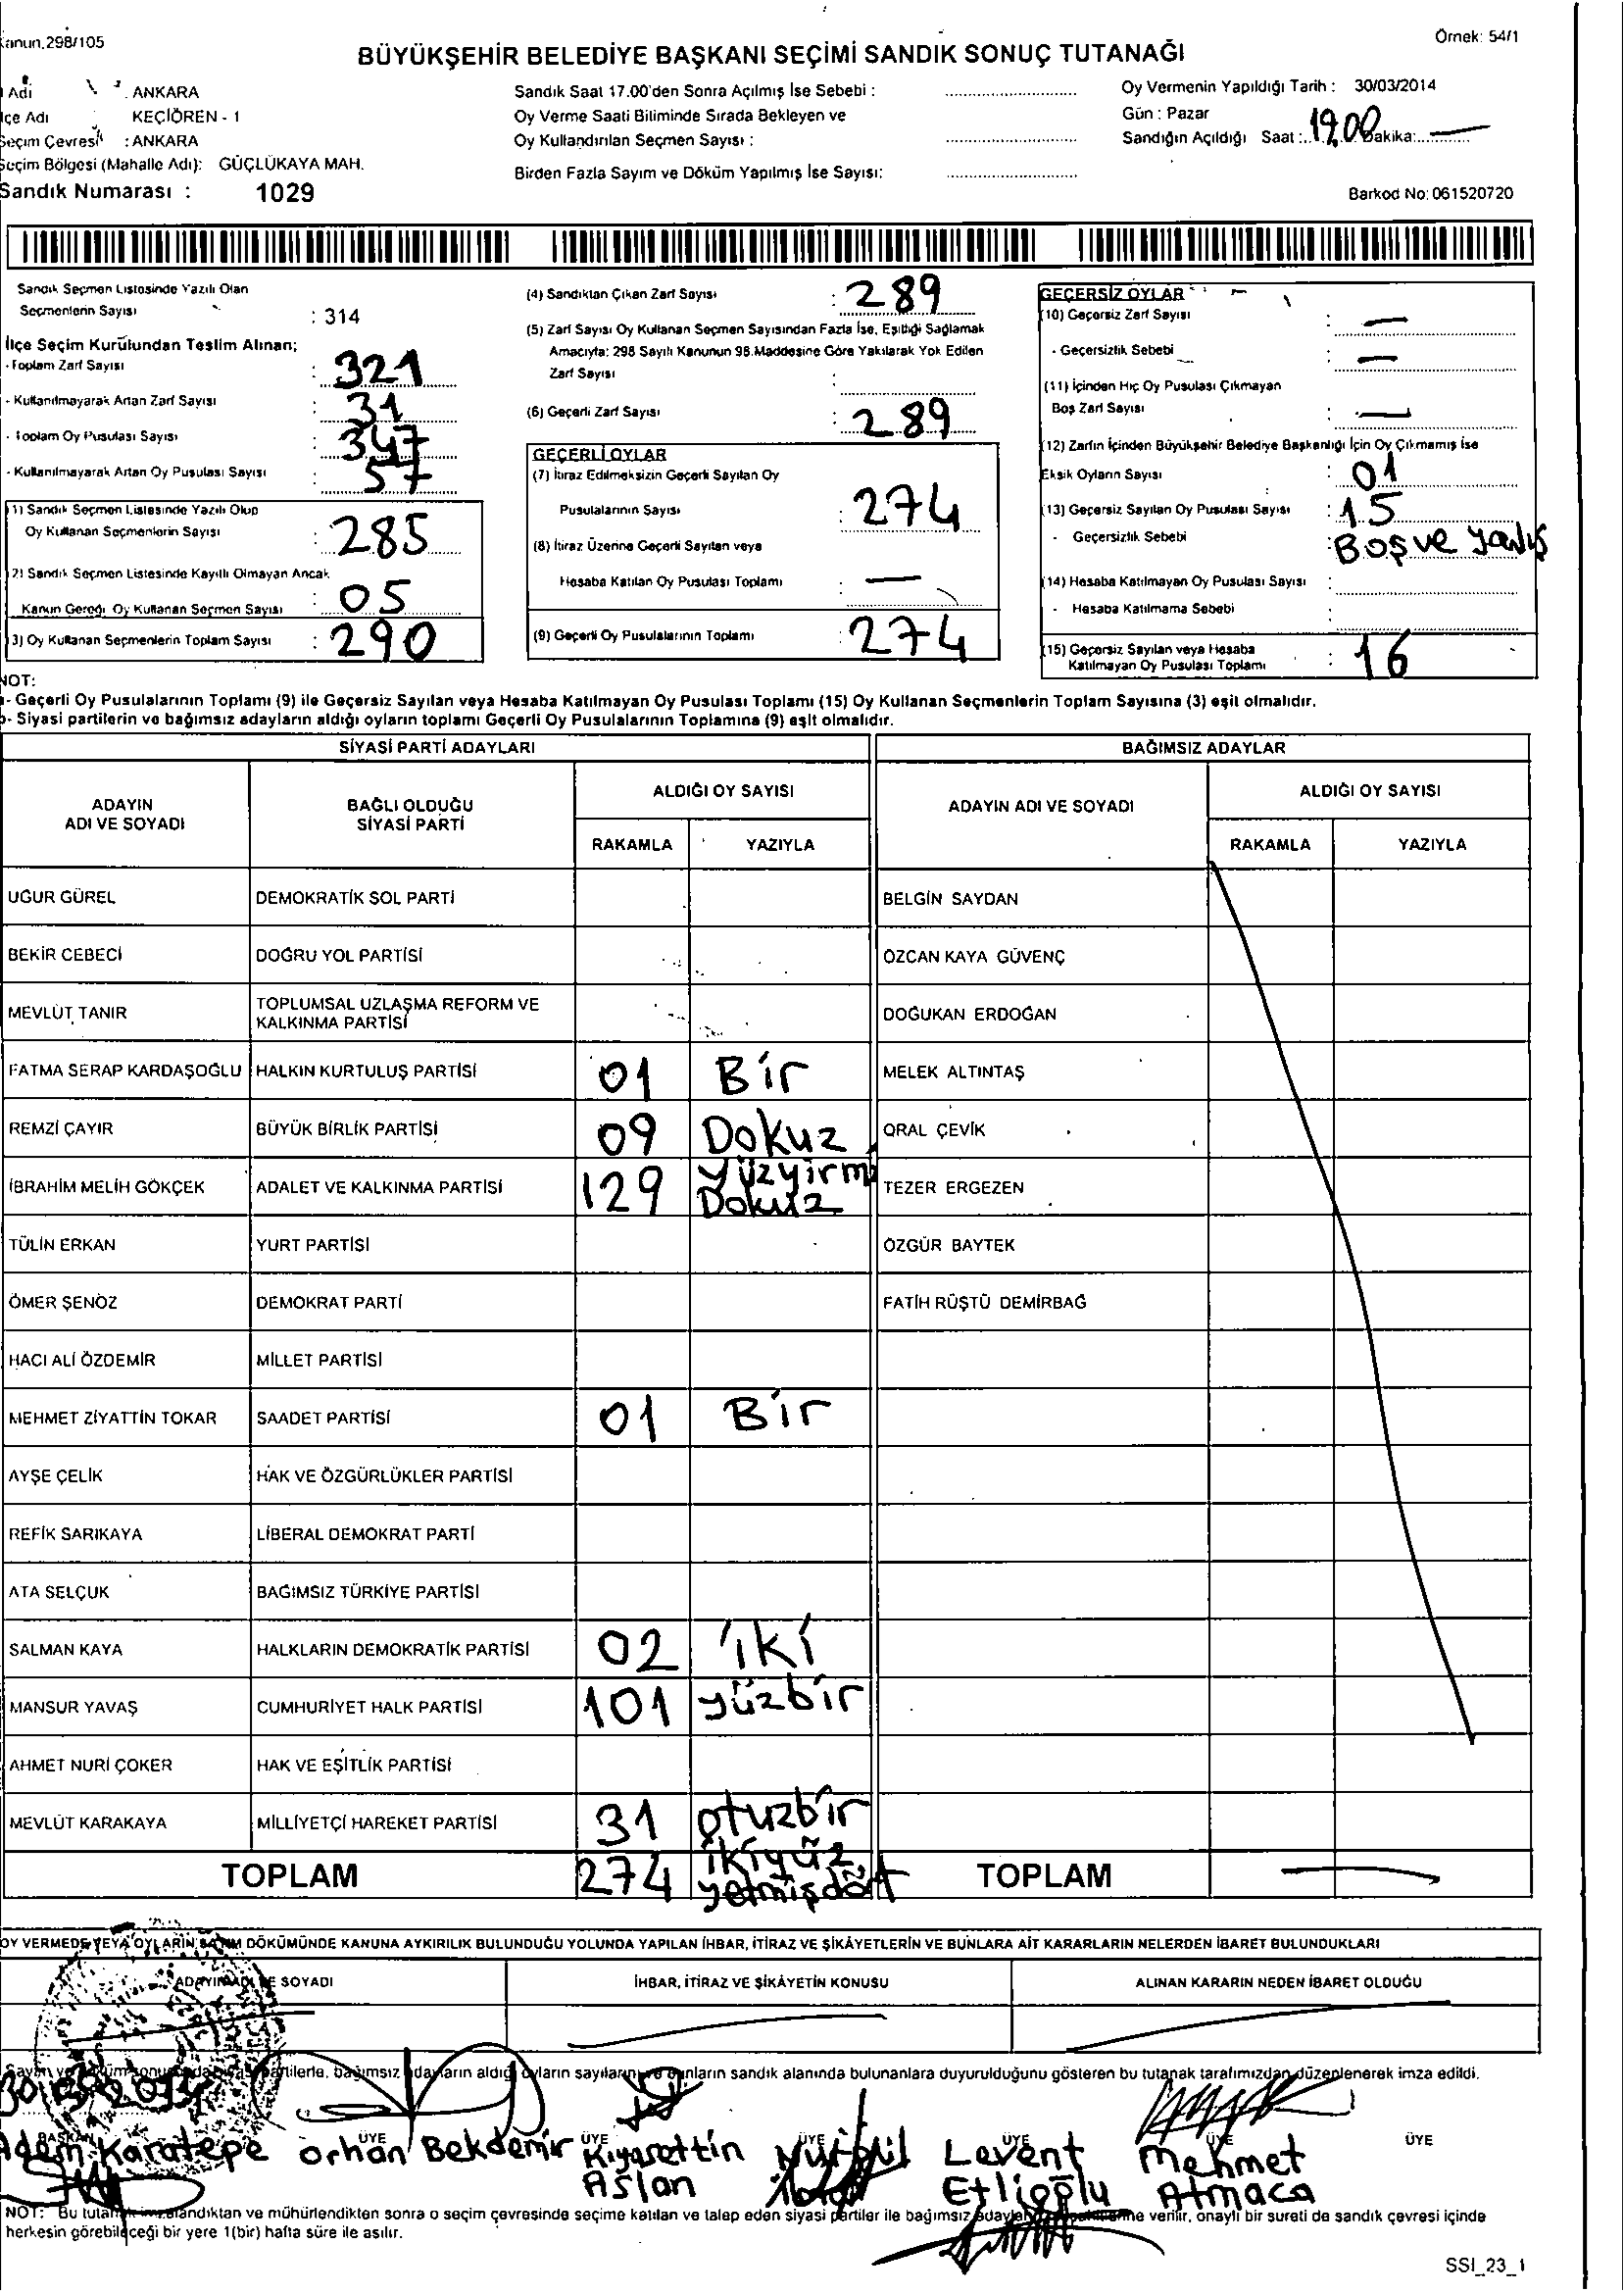 Kanun.298/105
Örnek: 54/1
BÜYÜKŞEHİR BELEDİYE BAŞKANI SEÇİMİ SANDIK SONUÇ TUTANAĞI
Adı : ANKARA
İlçe Adı KEÇİÖREN - 1
Seçim Çevresi : ANKARA
Seçim Bölgesi (Mahalle Adı): GÜÇLÜKAYA MAH.
Sandık Numarası : 1029
Sandık Saat 17.00'den Sonra Açılmış İse Sebebi :
Oy Verme Saati Bitiminde Sırada Bekleyen ve
Oy Kullandırılan Seçmen Sayısı :
Birden Fazla Sayım ve Döküm Yapılmış İse Sayısı:
Oy Vermenin Yapıldığı Tarih : 30/03/2014
Gün : Pazar
Sandığın Açıldığı Saat : 19.00 Dakika: —
Barkod No: 061520720
Sandık Seçmen Listesinde Yazılı Olan
Seçmenlerin Sayısı : 314
İlçe Seçim Kurulundan Teslim Alınan;
- Toplam Zarf Sayısı : 321
- Kullanılmayarak Artan Zarf Sayısı : 31
- Toplam Oy Pusulası Sayısı : 347
- Kullanılmayarak Artan Oy Pusulası Sayısı : 57
(1) Sandık Seçmen Listesinde Yazılı Olup
Oy Kullanan Seçmenlerin Sayısı : 285
(2) Sandık Seçmen Listesinde Kayıtlı Olmayan Ancak
Kanun Gereği Oy Kullanan Seçmen Sayısı : 05
(3) Oy Kullanan Seçmenlerin Toplam Sayısı : 290
(4) Sandıktan Çıkan Zarf Sayısı : 289
(5) Zarf Sayısı Oy Kullanan Seçmen Sayısından Fazla İse, Eşitliği Sağlamak
Amacıyla: 298 Sayılı Kanunun 98.Maddesine Göre Yakılarak Yok Edilen
Zarf Sayısı :
(6) Geçerli Zarf Sayısı : 289
GEÇERLİ OYLAR
(7) İtiraz Edilmeksizin Geçerli Sayılan Oy
Pusulalarının Sayısı : 274
(8) İtiraz Üzerine Geçerli Sayılan veya
Hesaba Katılan Oy Pusulası Toplamı : —
(9) Geçerli Oy Pusulalarının Toplamı : 274
GEÇERSİZ OYLAR
(10) Geçersiz Zarf Sayısı : —
- Geçersizlik Sebebi : —
(11) İçinden Hiç Oy Pusulası Çıkmayan
Boş Zarf Sayısı : —
(12) Zarfın İçinden Büyükşehir Belediye Başkanlığı İçin Oy Çıkmamış İse
Eksik Oyların Sayısı : 01
(13) Geçersiz Sayılan Oy Pusulası Sayısı : 15
- Geçersizlik Sebebi : Boş ve yanlış
(14) Hesaba Katılmayan Oy Pusulası Sayısı :
- Hesaba Katılmama Sebebi :
(15) Geçersiz Sayılan veya Hesaba
Katılmayan Oy Pusulası Toplamı : 16
NOT:
a- Geçerli Oy Pusulalarının Toplamı (9) ile Geçersiz Sayılan veya Hesaba Katılmayan Oy Pusulası Toplamı (15) Oy Kullanan Seçmenlerin Toplam Sayısına (3) eşit olmalıdır.
b- Siyasi partilerin ve bağımsız adayların aldığı oyların toplamı Geçerli Oy Pusulalarının Toplamına (9) eşit olmalıdır.
SİYASİ PARTİ ADAYLARI
BAĞIMSIZ ADAYLAR
ADAYIN
ADI VE SOYADI
BAĞLI OLDUĞU
SİYASİ PARTİ
ALDIĞI OY SAYISI
RAKAMLA YAZIYLA
ADAYIN ADI VE SOYADI
ALDIĞI OY SAYISI
RAKAMLA YAZIYLA
UĞUR GÜREL DEMOKRATİK SOL PARTİ BELGİN SAYDAN
BEKİR CEBECİ DOĞRU YOL PARTİSİ ÖZCAN KAYA GÜVENÇ
MEVLÜT TANIR TOPLUMSAL UZLAŞMA REFORM VE
KALKINMA PARTİSİ DOĞUKAN ERDOĞAN
FATMA SERAP KARDAŞOĞLU HALKIN KURTULUŞ PARTİSİ 01 Bir MELEK ALTINTAŞ
REMZİ ÇAYIR BÜYÜK BİRLİK PARTİSİ 09 Dokuz ORAL ÇEVİK
İBRAHİM MELİH GÖKÇEK ADALET VE KALKINMA PARTİSİ 129 Yüzyirmi
Dokuz TEZER ERGEZEN
TÜLİN ERKAN YURT PARTİSİ ÖZGÜR BAYTEK
ÖMER ŞENÖZ DEMOKRAT PARTİ FATİH RÜŞTÜ DEMİRBAĞ
HACI ALİ ÖZDEMİR MİLLET PARTİSİ
MEHMET ZİYATTİN TOKAR SAADET PARTİSİ 01 Bir
AYŞE ÇELİK HAK VE ÖZGÜRLÜKLER PARTİSİ
REFİK SARIKAYA LİBERAL DEMOKRAT PARTİ
ATA SELÇUK BAĞIMSIZ TÜRKİYE PARTİSİ
SALMAN KAYA HALKLARIN DEMOKRATİK PARTİSİ 02 iki
MANSUR YAVAŞ CUMHURİYET HALK PARTİSİ 101 yüzbir
AHMET NURİ ÇOKER HAK VE EŞİTLİK PARTİSİ
MEVLÜT KARAKAYA MİLLİYETÇİ HAREKET PARTİSİ 31 otuzbir
TOPLAM 274 ikiyüz
yetmişdört TOPLAM —
OY VERMEDE VEYA OYLARIN SAYIM DÖKÜMÜNDE KANUNA AYKIRILIK BULUNDUĞU YOLUNDA YAPILAN İHBAR, İTİRAZ VE ŞİKÂYETLERİN VE BUNLARA AİT KARARLARIN NELERDEN İBARET BULUNDUKLARI
ADAYIN ADI VE SOYADI İHBAR, İTİRAZ VE ŞİKÂYETİN KONUSU ALINAN KARARIN NEDEN İBARET OLDUĞU
partilerle, bağımsız adayların aldığı oyların sayılarını ve bunların sandık alanında bulunanlara duyurulduğunu gösteren bu tutanak tarafımızdan düzenlenerek imza edildi.
BAŞKAN ÜYE ÜYE ÜYE ÜYE ÜYE ÜYE
Adem Karatepe Orhan Bekdemir Kıyasettin Levent Mehmet
Aslan Etlioğlu Atmaca
NOT: Bu tutanak imzalandıktan ve mühürlendikten sonra o seçim çevresinde seçime katılan ve talep eden siyasi partiler ile bağımsız verilir, onaylı bir sureti de sandık çevresi içinde
herkesin görebileceği bir yere 1(bir) hafta süre ile asılır.
SSI_23_1